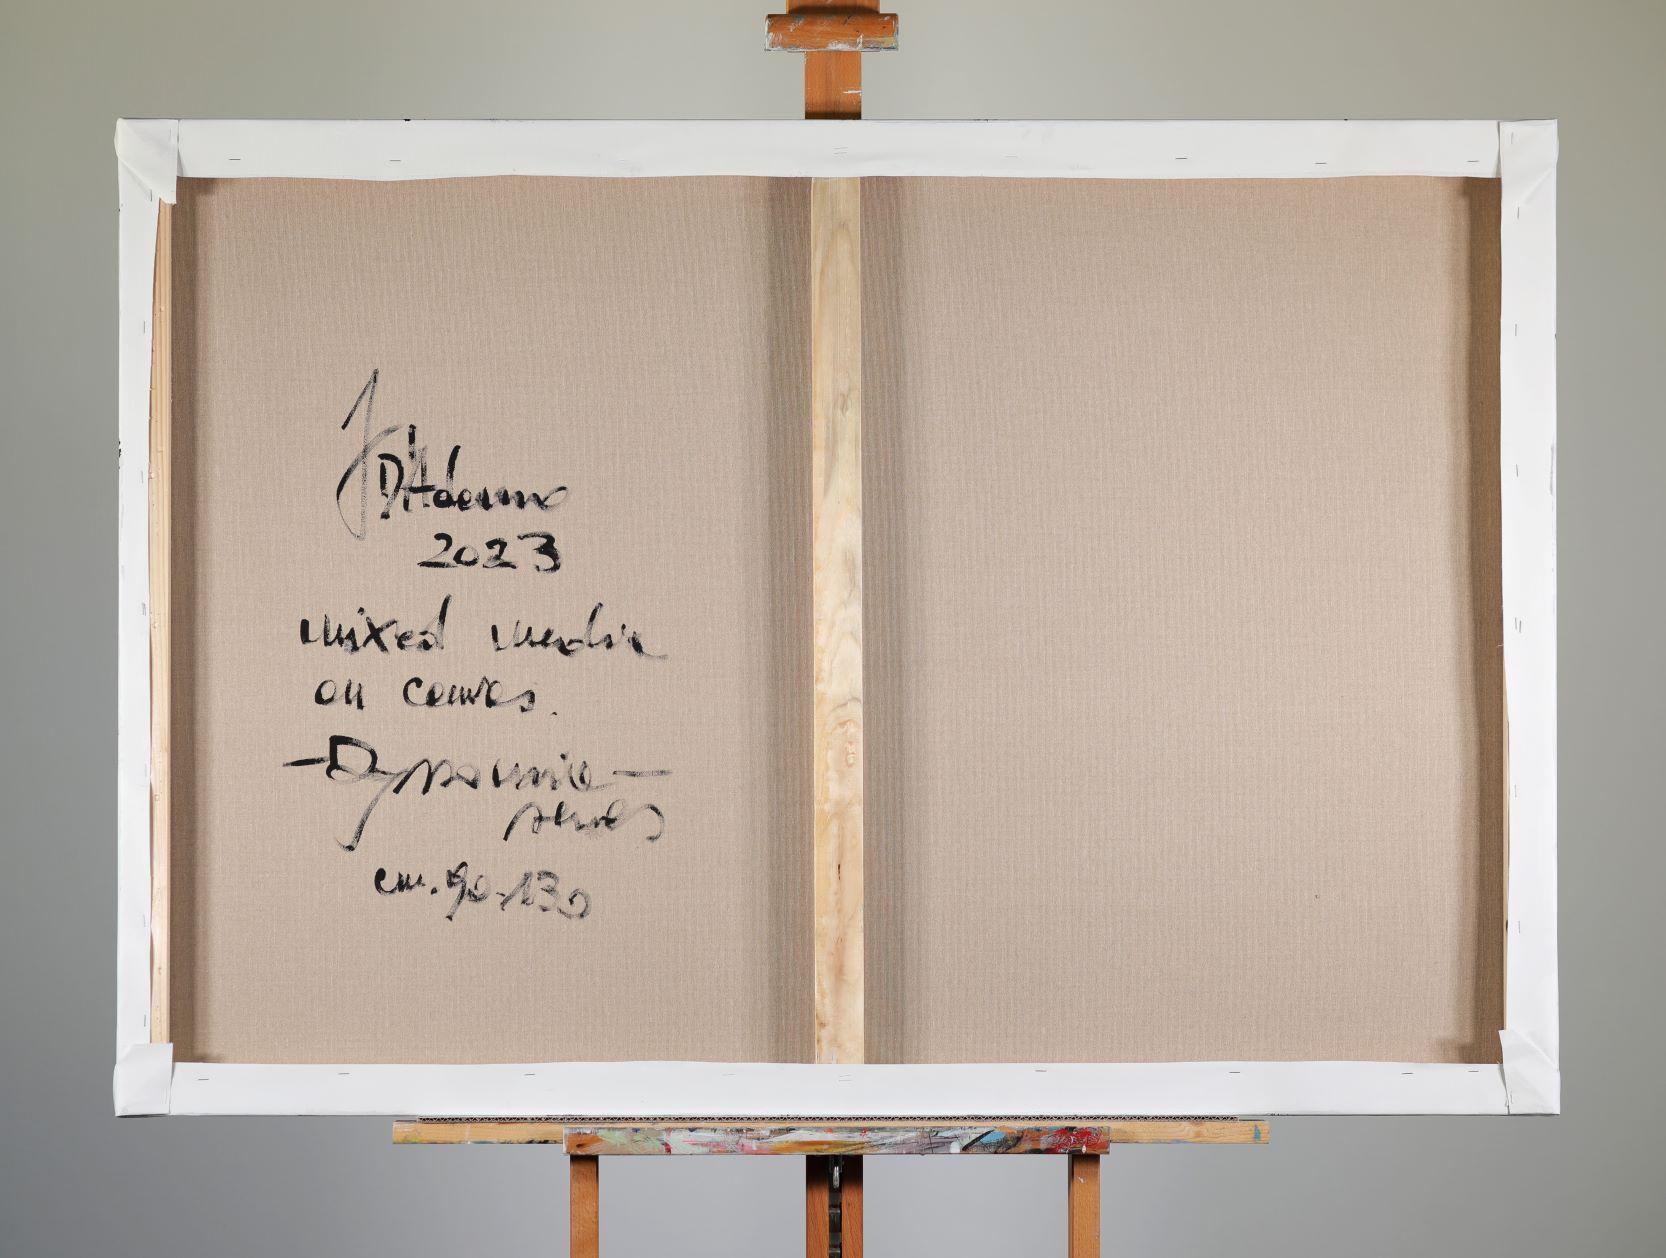 D'Adamo
2023
mixed media
on canvas.
cm. 90-130